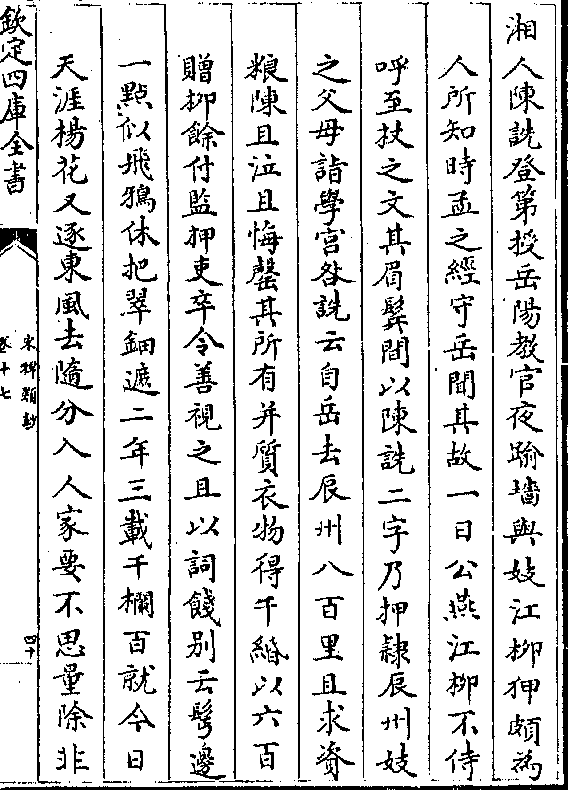 湘人陳詵登第授岳陽教官夜踰墻與妓江柳狎頗為
人所知時孟之經守岳聞其故一日公燕江柳不侍
呼至杖之文其眉鬢間以陳詵二字乃押隷辰州妓
之父母詣學宮咎詵云自岳去辰州八百里且求資
粮陳且泣且悔罄其所有并質衣物得千緡以六百
贈柳餘付監押吏卒令善視之且以詞餞别云鬢邊
一點似飛鴉休把翠鈿遮二年三載千欄百就今日
天涯楊花又逐東風去隨分入人家要不思量除非
欽定四庫全書
宋稗類鈔
卷十七
四十